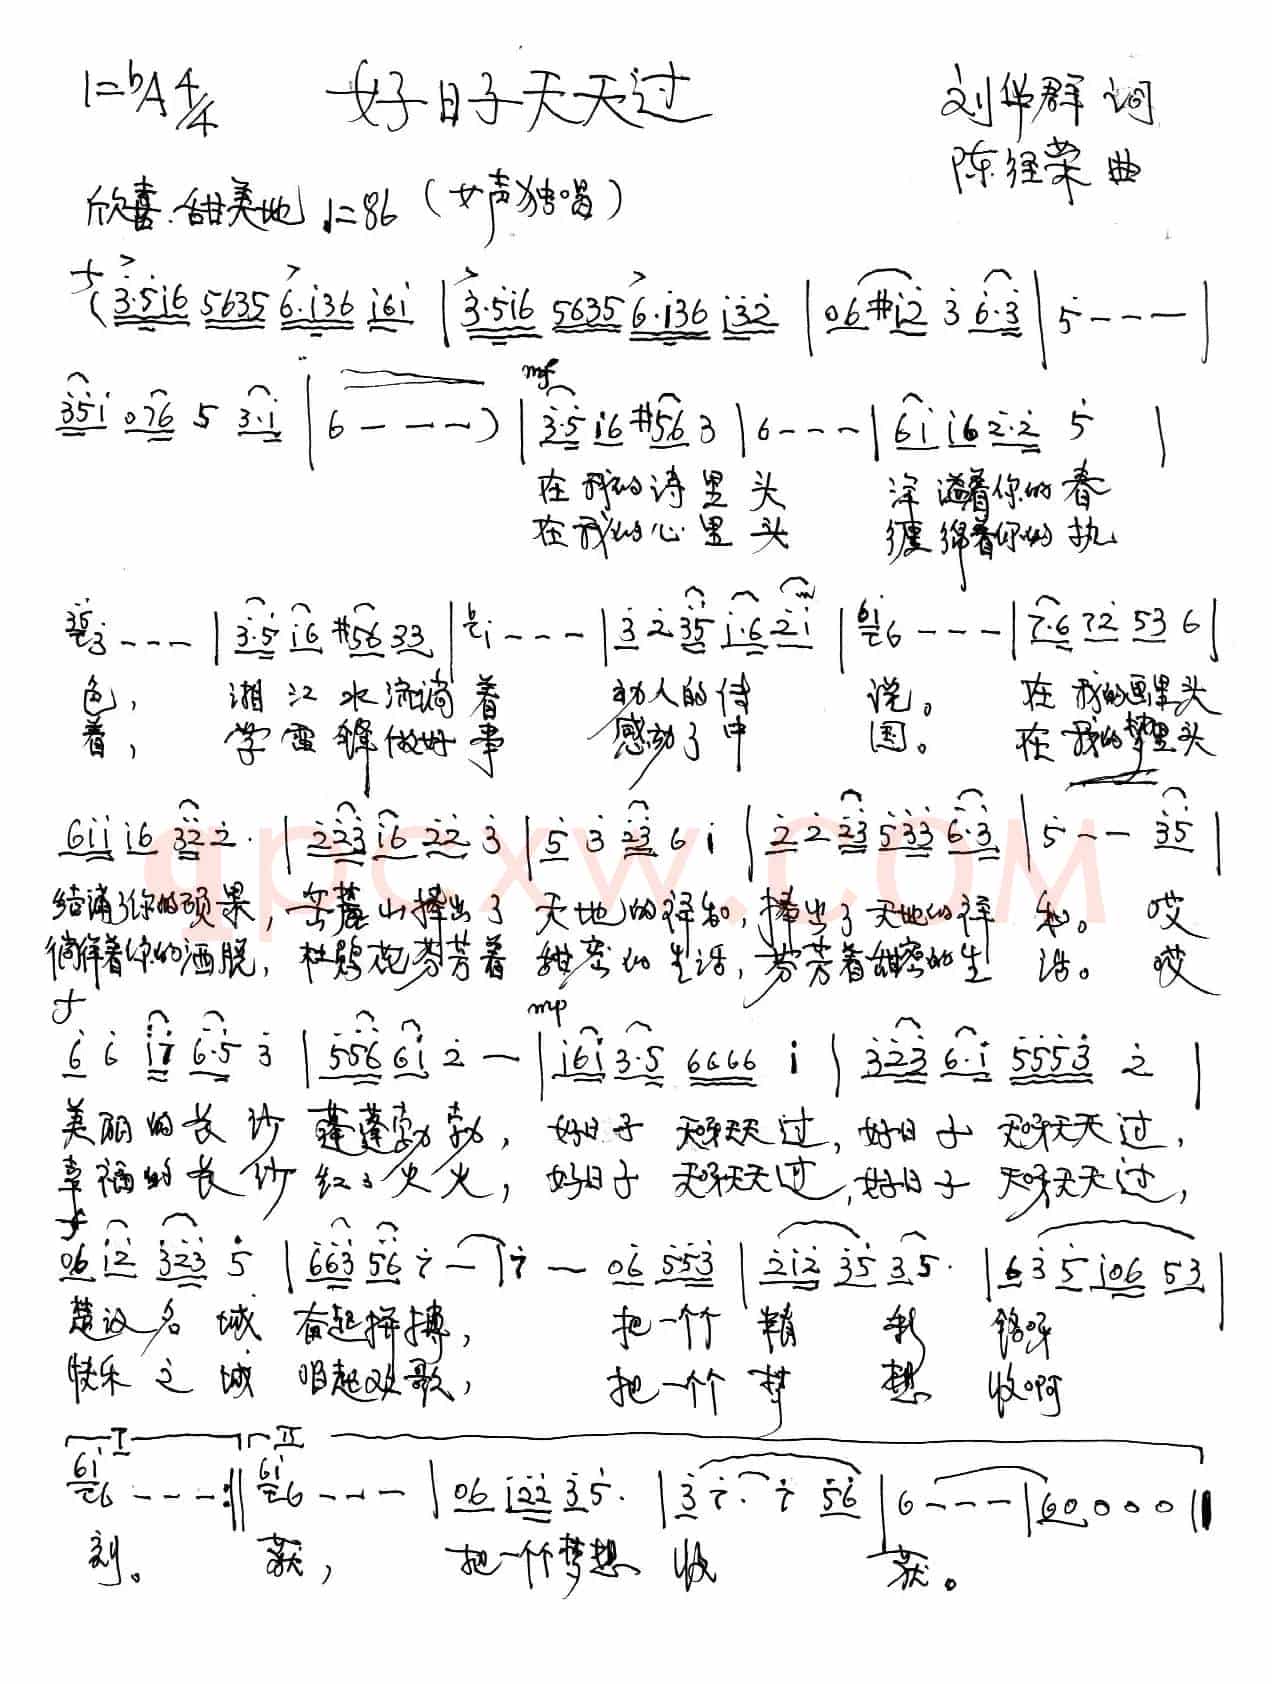 1=♭A 4/4 好日子天天过 刘华群 词
陈经荣 曲
欣喜.甜美地 ♩=86 (女声独唱)
f
(3·5i6 5635 6·i36 i6i | 3·5i6 5635 6·i36 i32 | 06 #i2 3 6·3 | 5 - - - |
mf
35i 076 5 3·i | 6 - - - ) | 3·5 i6 #56 3 | 6 - - - | 6i i6 2·2 5 |
在我的诗里头 洋溢着你的春
在我的心里头 缠绵着你的执
35 3 - - - | 3·5 i6 #56 33 | 2 i - - - | 3 2 35 i·6 2i | 6i 6 - - - | 7·6 72 53 6 |
色, 湘江水流淌着 动人的传说。 在我的画里头
着, 学雷锋做好事 感动了中国。 在我的梦里头
6ii i6 32 2· | 223 i6 22 3 | 5 3 23 6 i | 2 2 23 533 6·3 | 5 - - 35 |
qpcxw.com
结满了你的硕果, 岳麓山捧出了天地的祥和, 捧出了天地的祥和。 哎
徜徉着你的洒脱, 杜鹃花芬芳着甜蜜的生活, 芬芳着甜蜜的生活。 哎
f mp
6 6 i7 6·5 3 | 556 6i 2 - | i6i 3·5 6666 i | 323 6·i 5553 2 |
美丽的长沙 蓬蓬勃勃, 好日子 天呀天天过, 好日子 天呀天天过,
幸福的长沙 红红火火, 好日子 天呀天天过, 好日子 天呀天天过,
f
06 i2 323 5 | 663 56 7 - | 7 - 06 553 | 2i2 35 3 5· | 6 3 5 i06 53 |
楚汉名城 奋起拼搏, 把一个精彩 铭呀
快乐之城 唱起欢歌, 把一个梦想 收啊
I II
6i 6 - - - :‖ 6i 6 - - - | 06 i22 3 5· | 3 7· 7 56 | 6 - - - | 60 0 0 0 ‖
刻。 获, 把一个梦想 收 获。